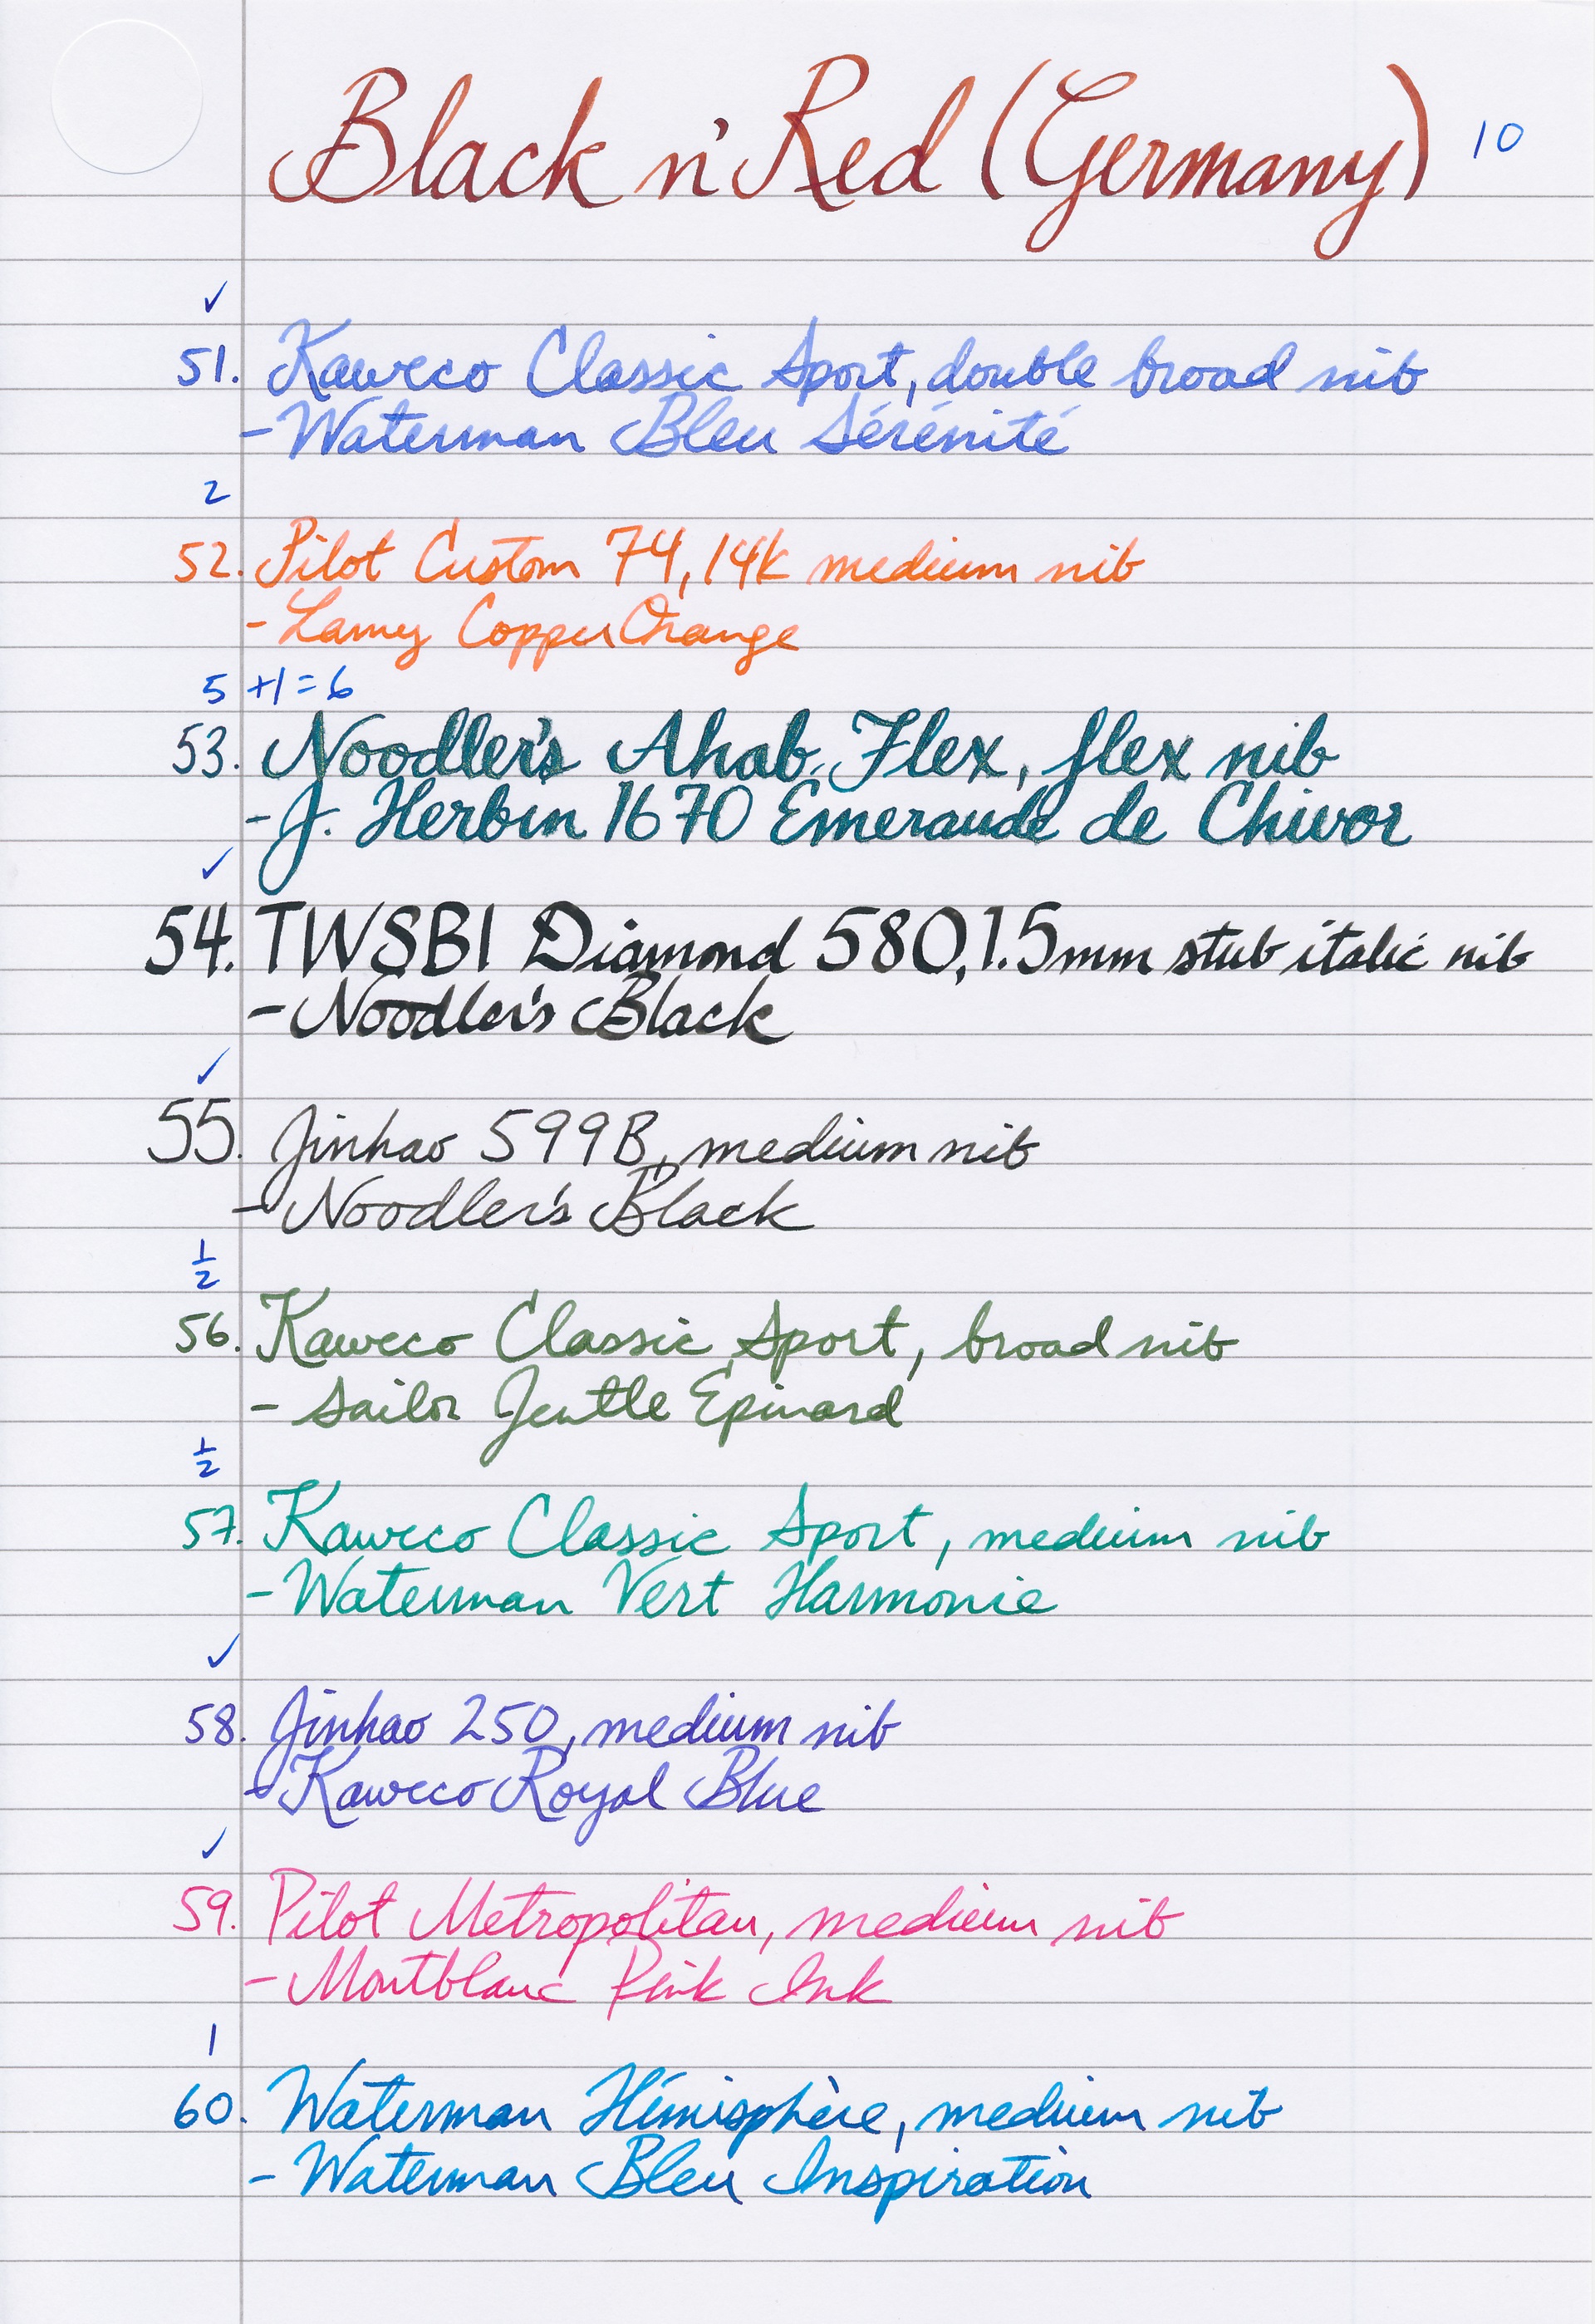 Black n' Red (Germany) 10
✓
51. Kaweco Classic Sport, double broad nib
- Waterman Bleu Sérénité
2
52. Pilot Custom 74, 14k medium nib
- Lamy Copper Orange
5 +1 = 6
53. Noodler's Ahab Flex, flex nib
- J. Herbin 1670 Emeraude de Chivor
✓
54. TWSBI Diamond 580, 1.5mm stub italic nib
- Noodler's Black
✓
55. Jinhao 599B, medium nib
- Noodler's Black
1/2
56. Kaweco Classic Sport, broad nib
- Sailor Jentle Epinard
1/2
57. Kaweco Classic Sport, medium nib
- Waterman Vert Harmonie
✓
58. Jinhao 250, medium nib
- Kaweco Royal Blue
✓
59. Pilot Metropolitan, medium nib
- Montblanc Pink Ink
1
60. Waterman Hémisphère, medium nib
- Waterman Bleu Inspiration